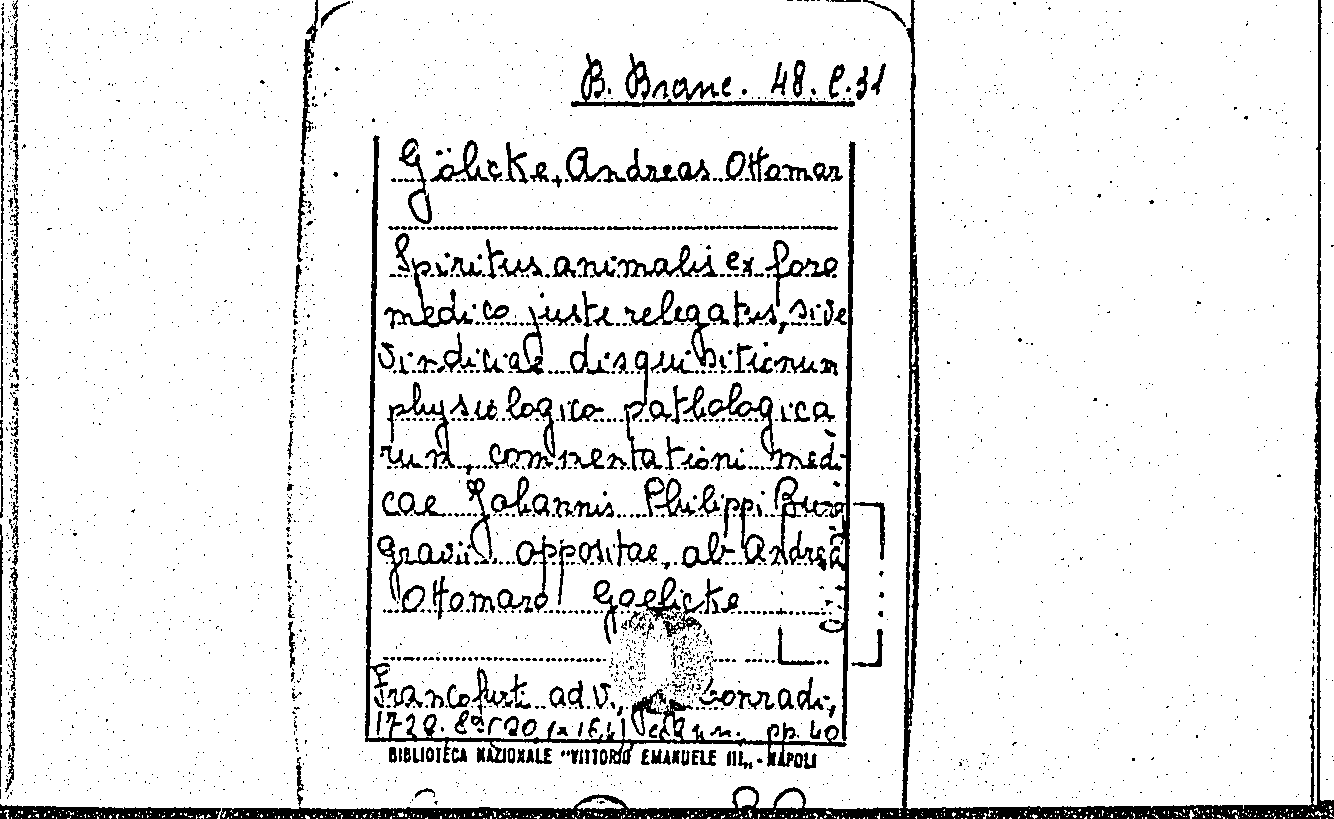 B. Branc. 48. C. 31
Gölicke, Andreas Ottomar
Spiritus animalis ex foro
medico juste relegatus, sive
vindiciae disquisitionum
physiologico pathologica
rum, commentationi medi
cae Johannis Philippi Burg
gravii oppositae, ab Andrea
Ottomaro Goelicke
Francofurti ad V., Conradi,
pp. 40
BIBLIOTECA NAZIONALE "VITTORIO EMANUELE III„ - NAPOLI